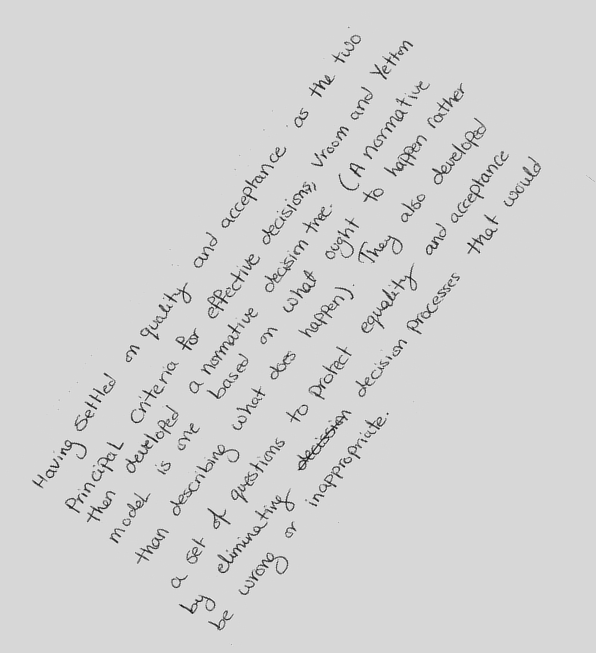 Having settled on quality and acceptance as the two
Principal criteria for effective decisions, Vroom and Yetton
then developed a normative decision tree. (A normative
model is one based on what ought to happen rather
than describing what does happen). They also developed
a set of questions to protect equality and acceptance
by eliminating decission decision processes that would
be wrong or inappropriate.